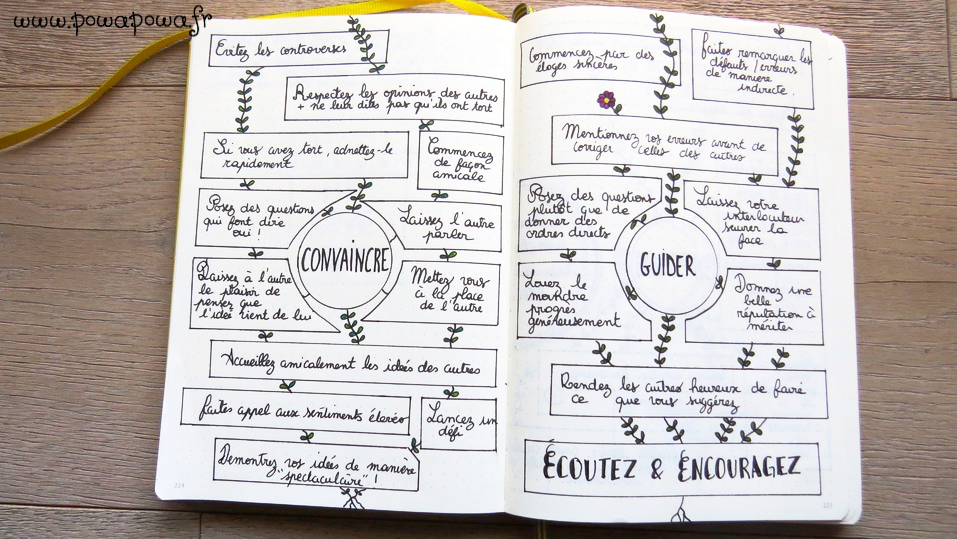 www.powapowa.fr
Evitez les controverses
Respectez les opinions des autres
+ ne leur dites pas qu'ils ont tort
Si vous avez tort, admettez-le
rapidement
Commencez
de façon
amicale
Posez des questions
qui font dire
oui !
Laissez l'autre
parler
CONVAINCRE
Laissez à l'autre
le plaisir de
penser que
l'idée vient de lui
Mettez vous
à la place
de l'autre
Accueillez amicalement les idées des autres
faites appel aux sentiments élevés
Lancez un
défi
Demontrez vos idées de manière
"spectaculaire" !
224
Commencez par des
éloges sincères
faites remarquer les
défauts / erreurs
de manière
indirecte.
Mentionnez vos erreurs avant de
corriger celles des autres
Posez des questions
plutôt que de
donner des
ordres directs
Laissez votre
interlocuteur
sauver la
face
GUIDER
Louez le
moindre
progres
généreusement
Donnez une
belle
réputation à
mériter
Rendez les autres heureux de faire
ce que vous suggérez
ÉCOUTEZ & ENCOURAGEZ
225